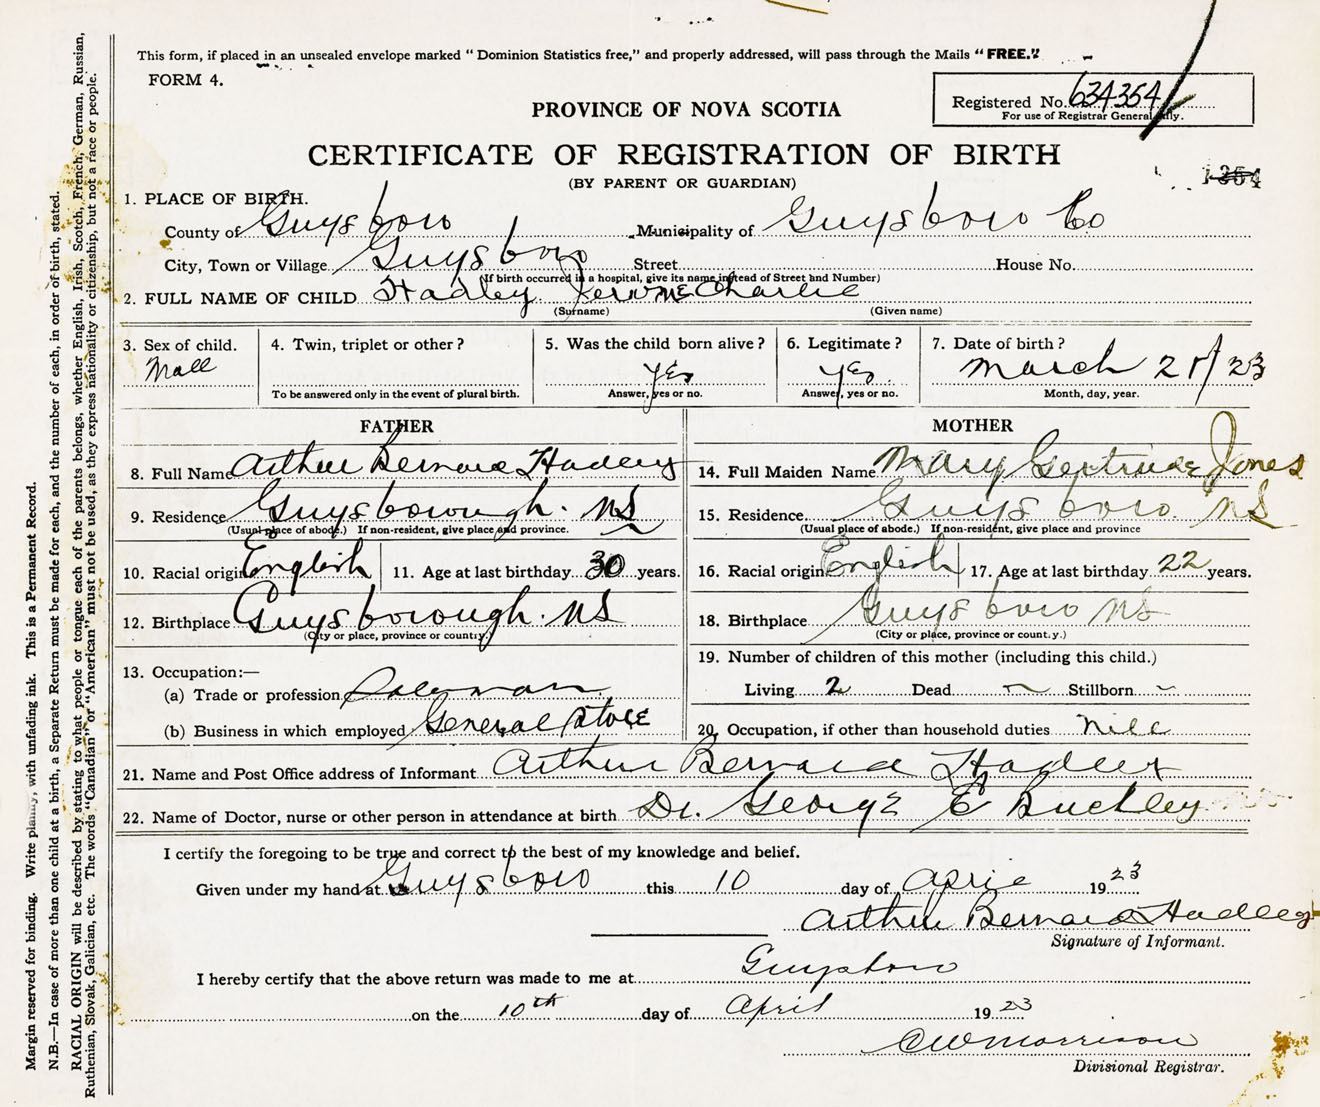 This form, if placed in an unsealed envelope marked "Dominion Statistics free," and properly addressed, will pass through the Mails "FREE."
FORM 4.
Registered No. 634354
For use of Registrar General only.
PROVINCE OF NOVA SCOTIA
CERTIFICATE OF REGISTRATION OF BIRTH
(BY PARENT OR GUARDIAN)
1. PLACE OF BIRTH.
County of Guysboro Municipality of Guysboro Co
City, Town or Village Guysboro Street House No.
(If birth occurred in a hospital, give its name instead of Street and Number)
2. FULL NAME OF CHILD Hadley Jerome Charlie
(Surname) (Given name)
3. Sex of child. Mall
4. Twin, triplet or other?
To be answered only in the event of plural birth.
5. Was the child born alive? yes
Answer, yes or no.
6. Legitimate? yes.
Answer, yes or no.
7. Date of birth? March 23
Month, day, year.
FATHER
8. Full Name Arthur Bernard Hadley
9. Residence Guysborough. NS
(Usual place of abode.) If non-resident, give place and province.
10. Racial origin English 11. Age at last birthday 30 years.
12. Birthplace Guysborough. NS
(City or place, province or country.)
13. Occupation:—
(a) Trade or profession Salesman
(b) Business in which employed General Store
MOTHER
14. Full Maiden Name Mary Gertrude Jones
15. Residence Guysboro. NS
(Usual place of abode.) If non-resident, give place and province
16. Racial origin English 17. Age at last birthday 22 years.
18. Birthplace Guysboro NS
(City or place, province or count.y.)
19. Number of children of this mother (including this child.)
Living 2 Dead ~ Stillborn ~
20. Occupation, if other than household duties Nill
21. Name and Post Office address of Informant Arthur Bernard Hadley
22. Name of Doctor, nurse or other person in attendance at birth Dr. George E Buckley
I certify the foregoing to be true and correct to the best of my knowledge and belief.
Given under my hand at Guysboro this 10 day of April 1923
Arthur Bernard Hadley
Signature of Informant.
I hereby certify that the above return was made to me at Guysboro
on the 10th day of April 1923
CW Morrison
Divisional Registrar.
Margin reserved for binding. Write plainly, with unfading ink. This is a Permanent Record.
N.B.—In case of more than one child at a birth, a Separate Return must be made for each, and the number of each, in order of birth, stated.
RACIAL ORIGIN will be described by stating to what people or tongue each of the parents belongs, whether English, Irish, Scotch, French, German, Russian,
Ruthenian, Slovak, Galician, etc. The words "Canadian" or "American" must not be used, as they express nationality or citizenship, but not a race or people.